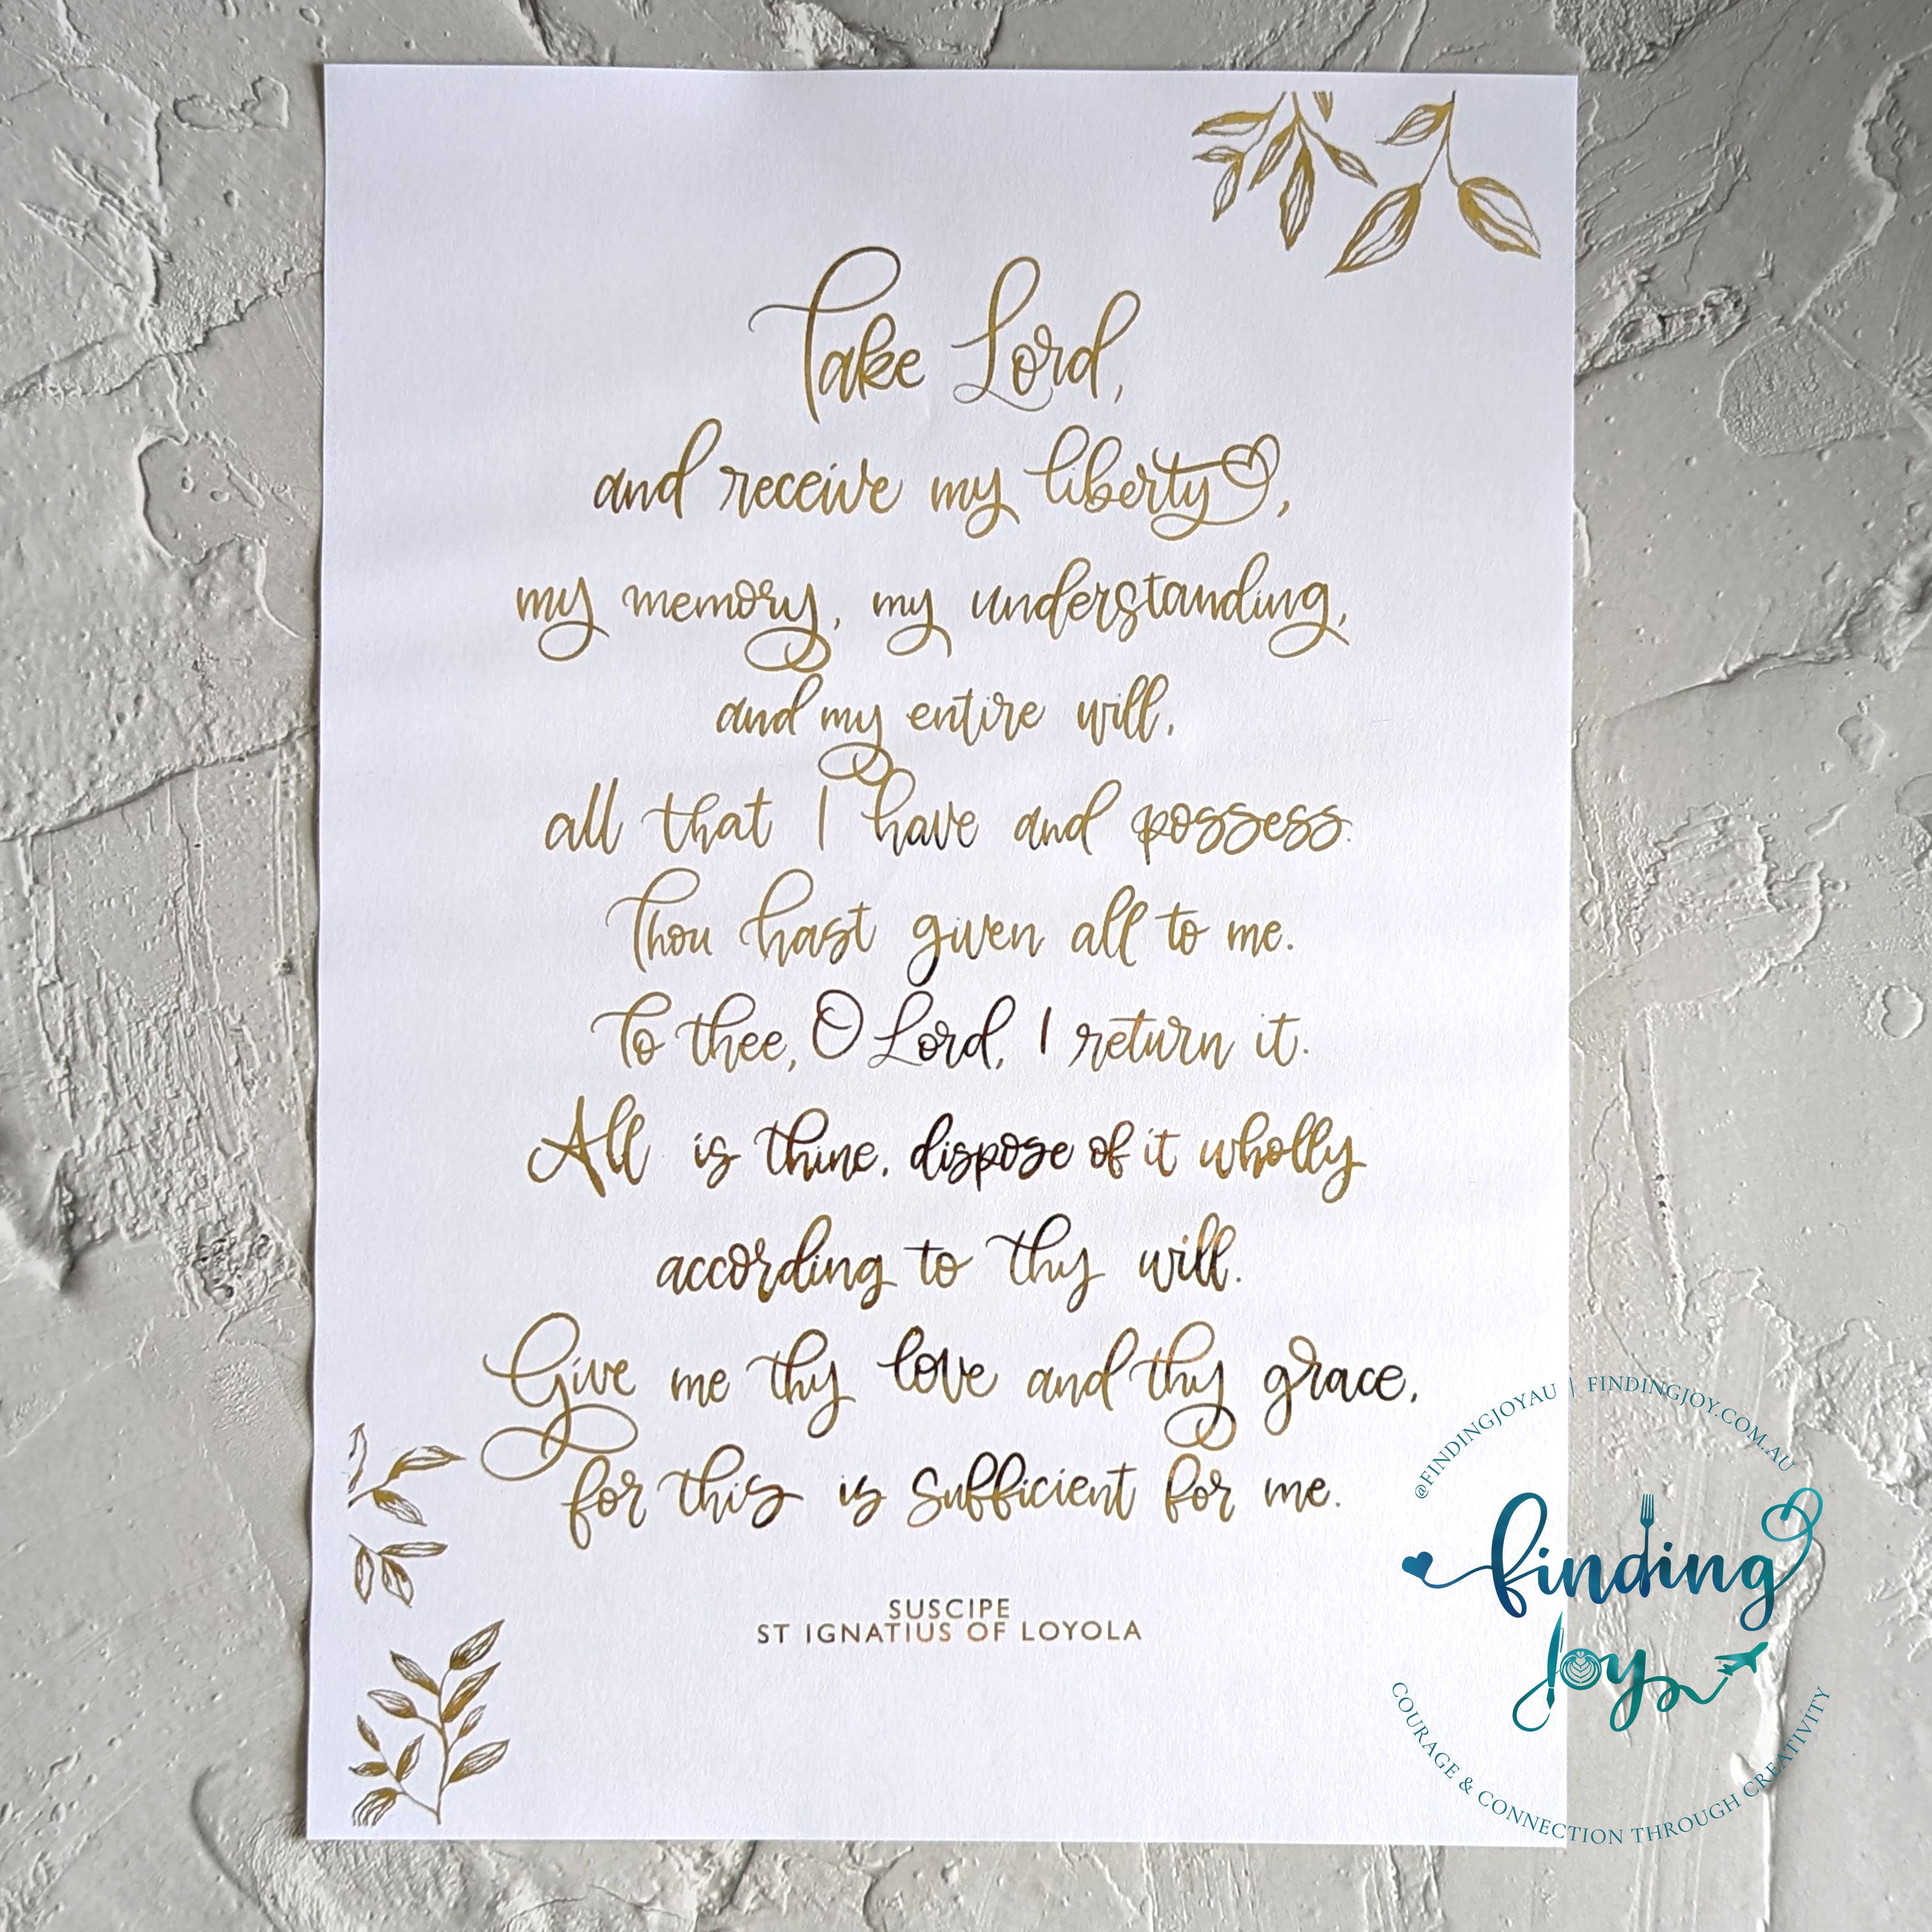 Take Lord,
and receive my liberty,
my memory, my understanding,
and my entire will,
all that I have and possess.
Thou hast given all to me.
To thee, O Lord, I return it.
All is thine, dispose of it wholly
according to thy will.
Give me thy love and thy grace,
for this is sufficient for me.
SUSCIPE
ST IGNATIUS OF LOYOLA
@FINDINGJOYAU | FINDINGJOY.COM.AU
finding
joy
COURAGE & CONNECTION THROUGH CREATIVITY